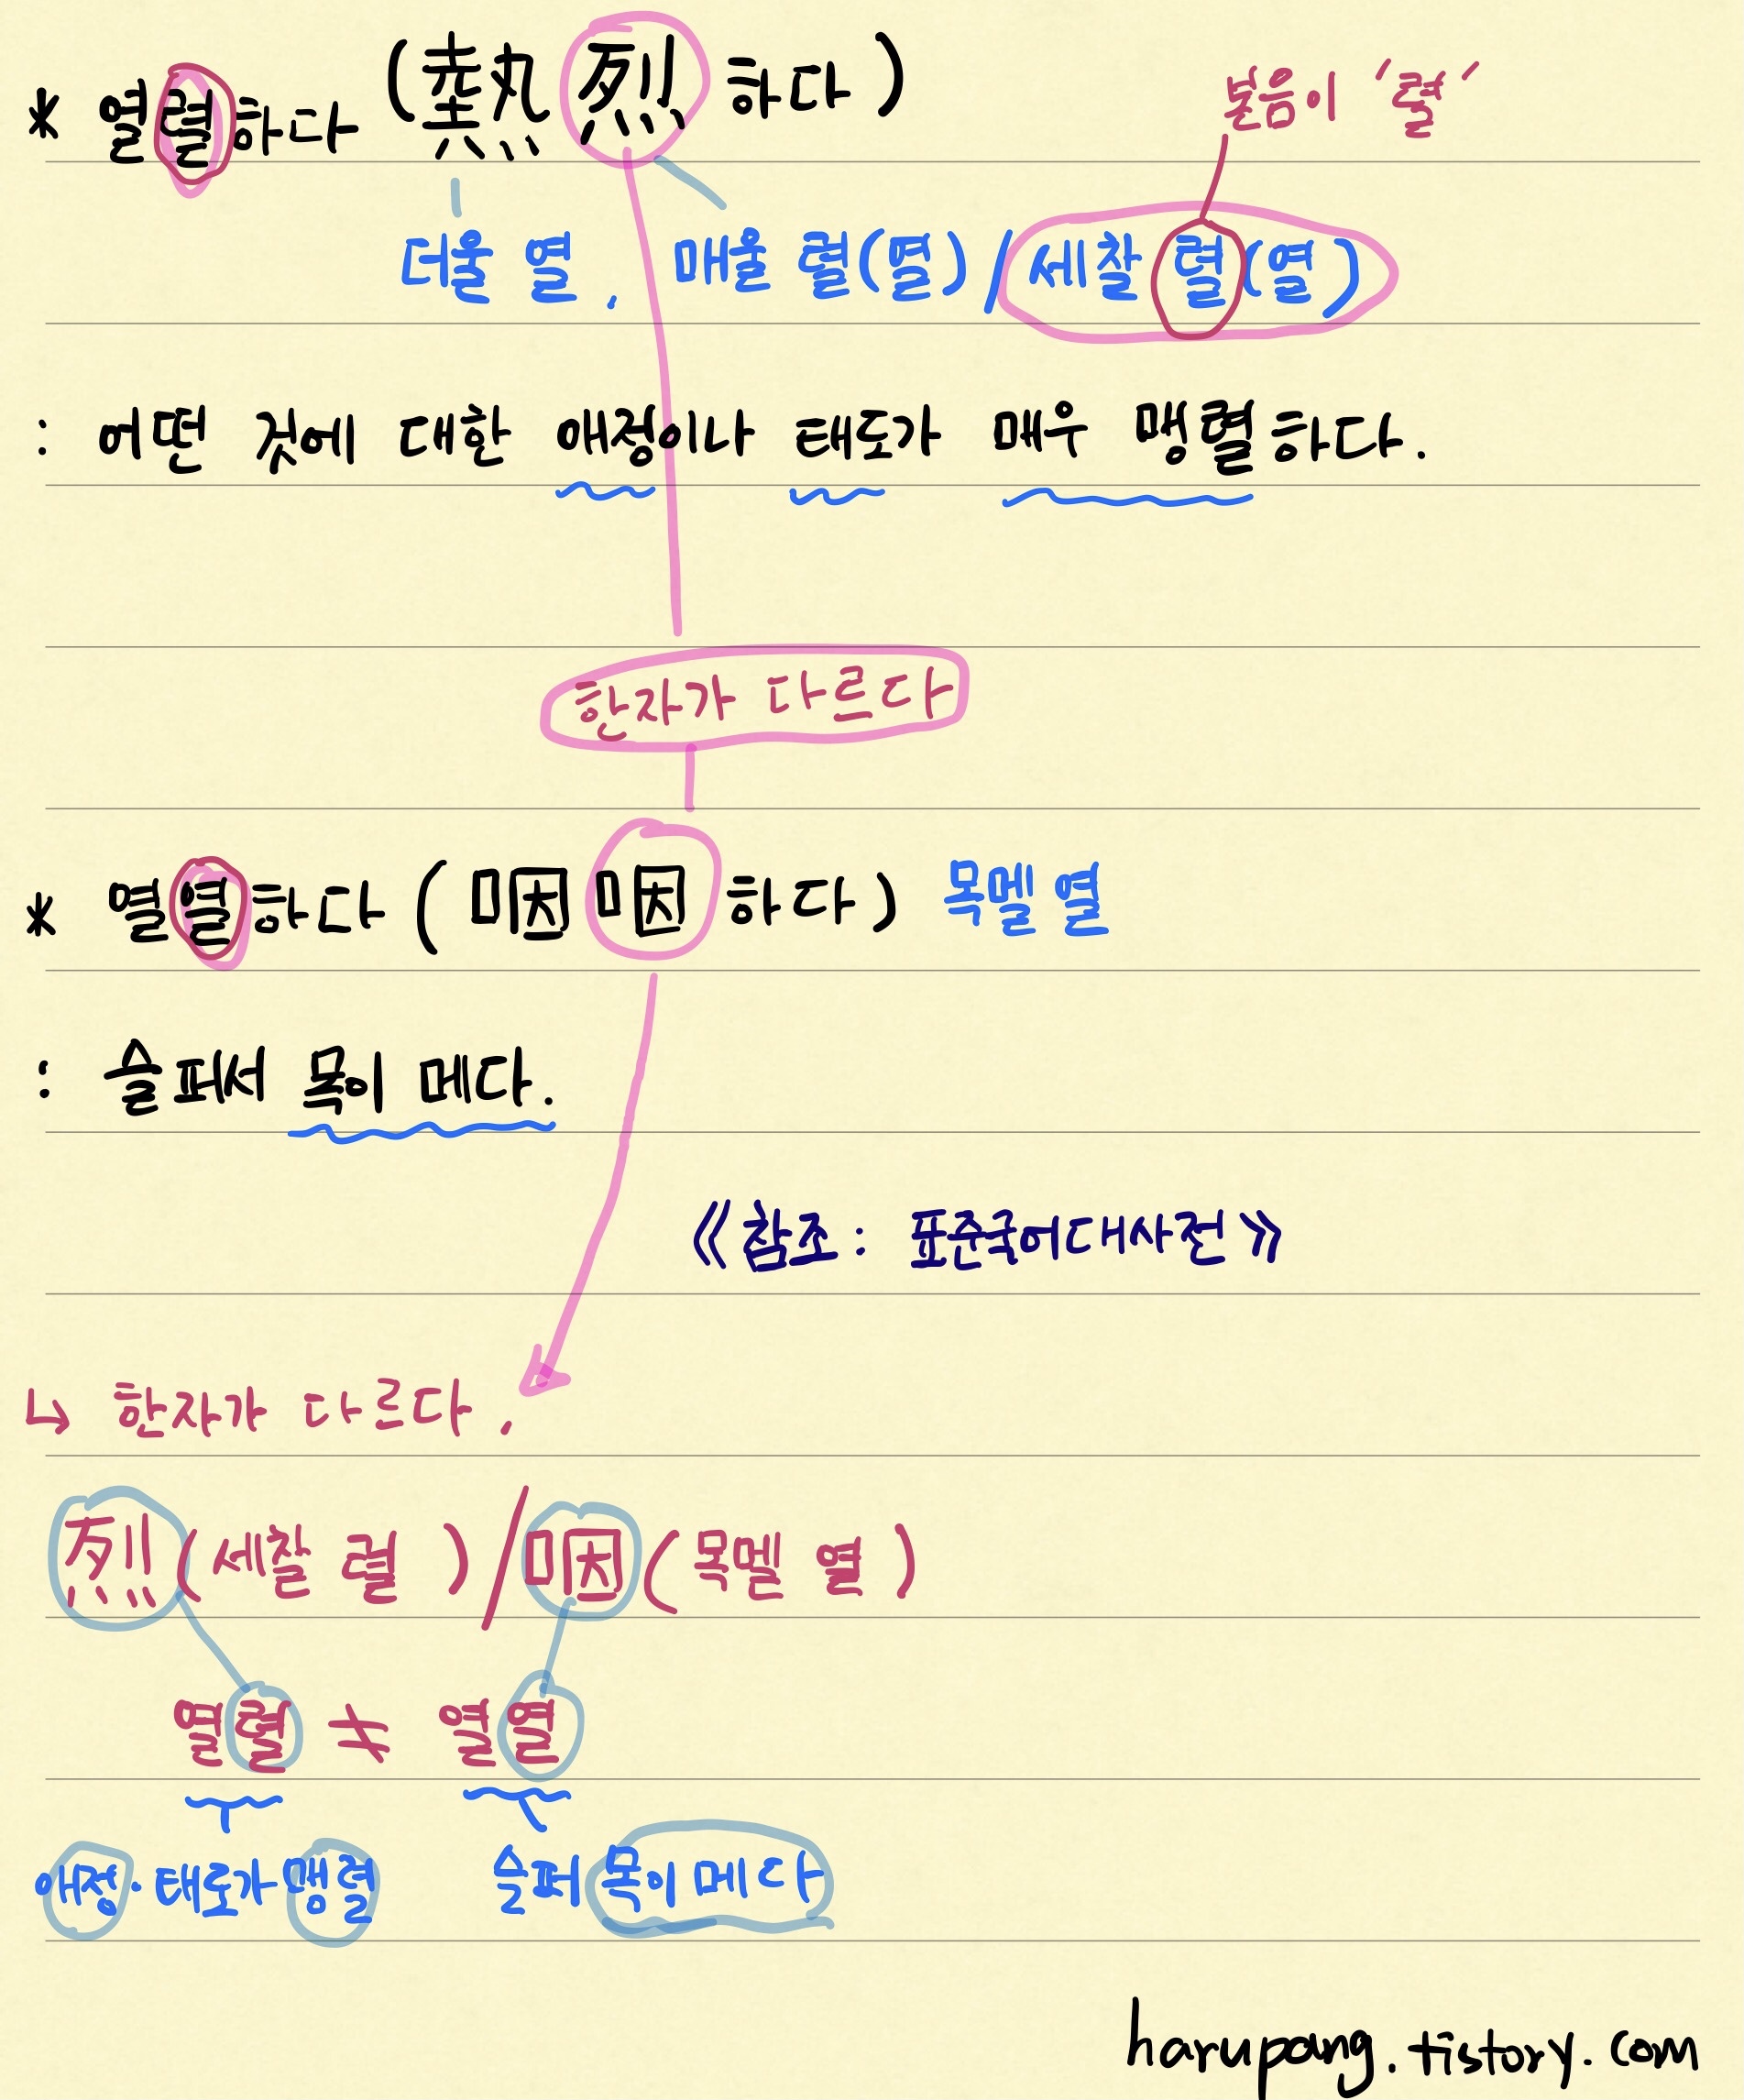 * 열렬하다 (熱烈하다)
본음이 '렬'
더울 열, 매울 렬(열)/세찰 렬(열)
: 어떤 것에 대한 애정이나 태도가 매우 맹렬하다.
한자가 다르다
* 열열하다 (咽咽하다) 목멜 열
: 슬퍼서 목이 메다.
《참조: 표준국어대사전》
↳ 한자가 다르다.
烈(세찰 렬)/咽(목멜 열)
열렬 ≠ 열열
애정·태도가 맹렬 슬퍼 목이 메다
harupang.tistory.com